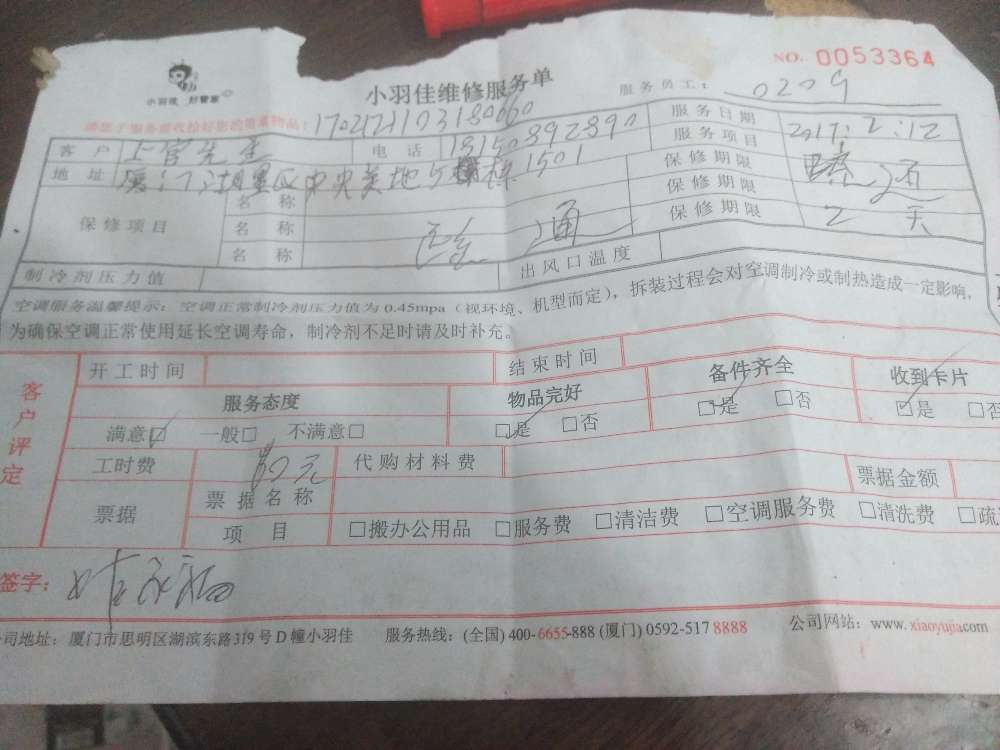 NO. 0053364
小羽佳 好管家
小羽佳维修服务单
服务员工： 0209
1702121103180660
客户 上官先生 电话 13150892890 服务日期 2017:2:12
地址 厦门湖里区中央美地 1501 服务项目
保修项目 名称 保修期限
名称 通 保修期限 2天
名称 保修期限
制冷剂压力值 出风口温度
空调服务温馨提示：空调正常制冷剂压力值为0.45mpa（视环境、机型而定），拆装过程会对空调制冷或制热造成一定影响，
为确保空调正常使用延长空调寿命，制冷剂不足时请及时补充。
客户评定
开工时间 结束时间
服务态度 物品完好 备件齐全 收到卡片
满意☑ 一般□ 不满意□ ☑是 □否 ☑是 □否 ☑是 □否
工时费 元 代购材料费
票据 票据名称 票据金额
项目 □搬办公用品 □服务费 □清洁费 □空调服务费 □清洗费 □疏
签字：
司地址：厦门市思明区湖滨东路319号D幢小羽佳 服务热线：(全国) 400-6655-888 (厦门) 0592-517 8888 公司网站：www.xiaoyujia.com